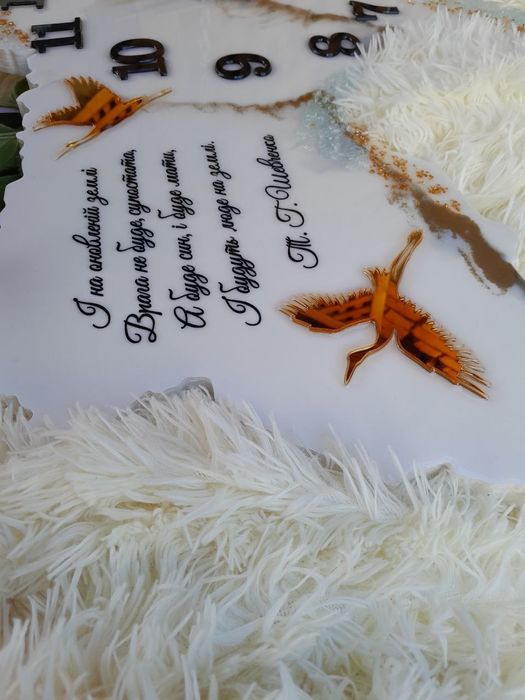 11
10
9
8
7
І на оновленій землі
Врага не буде, супостата,
А буде син, і буде мати,
І будуть люде на землі.
Т. Г. Шевченко